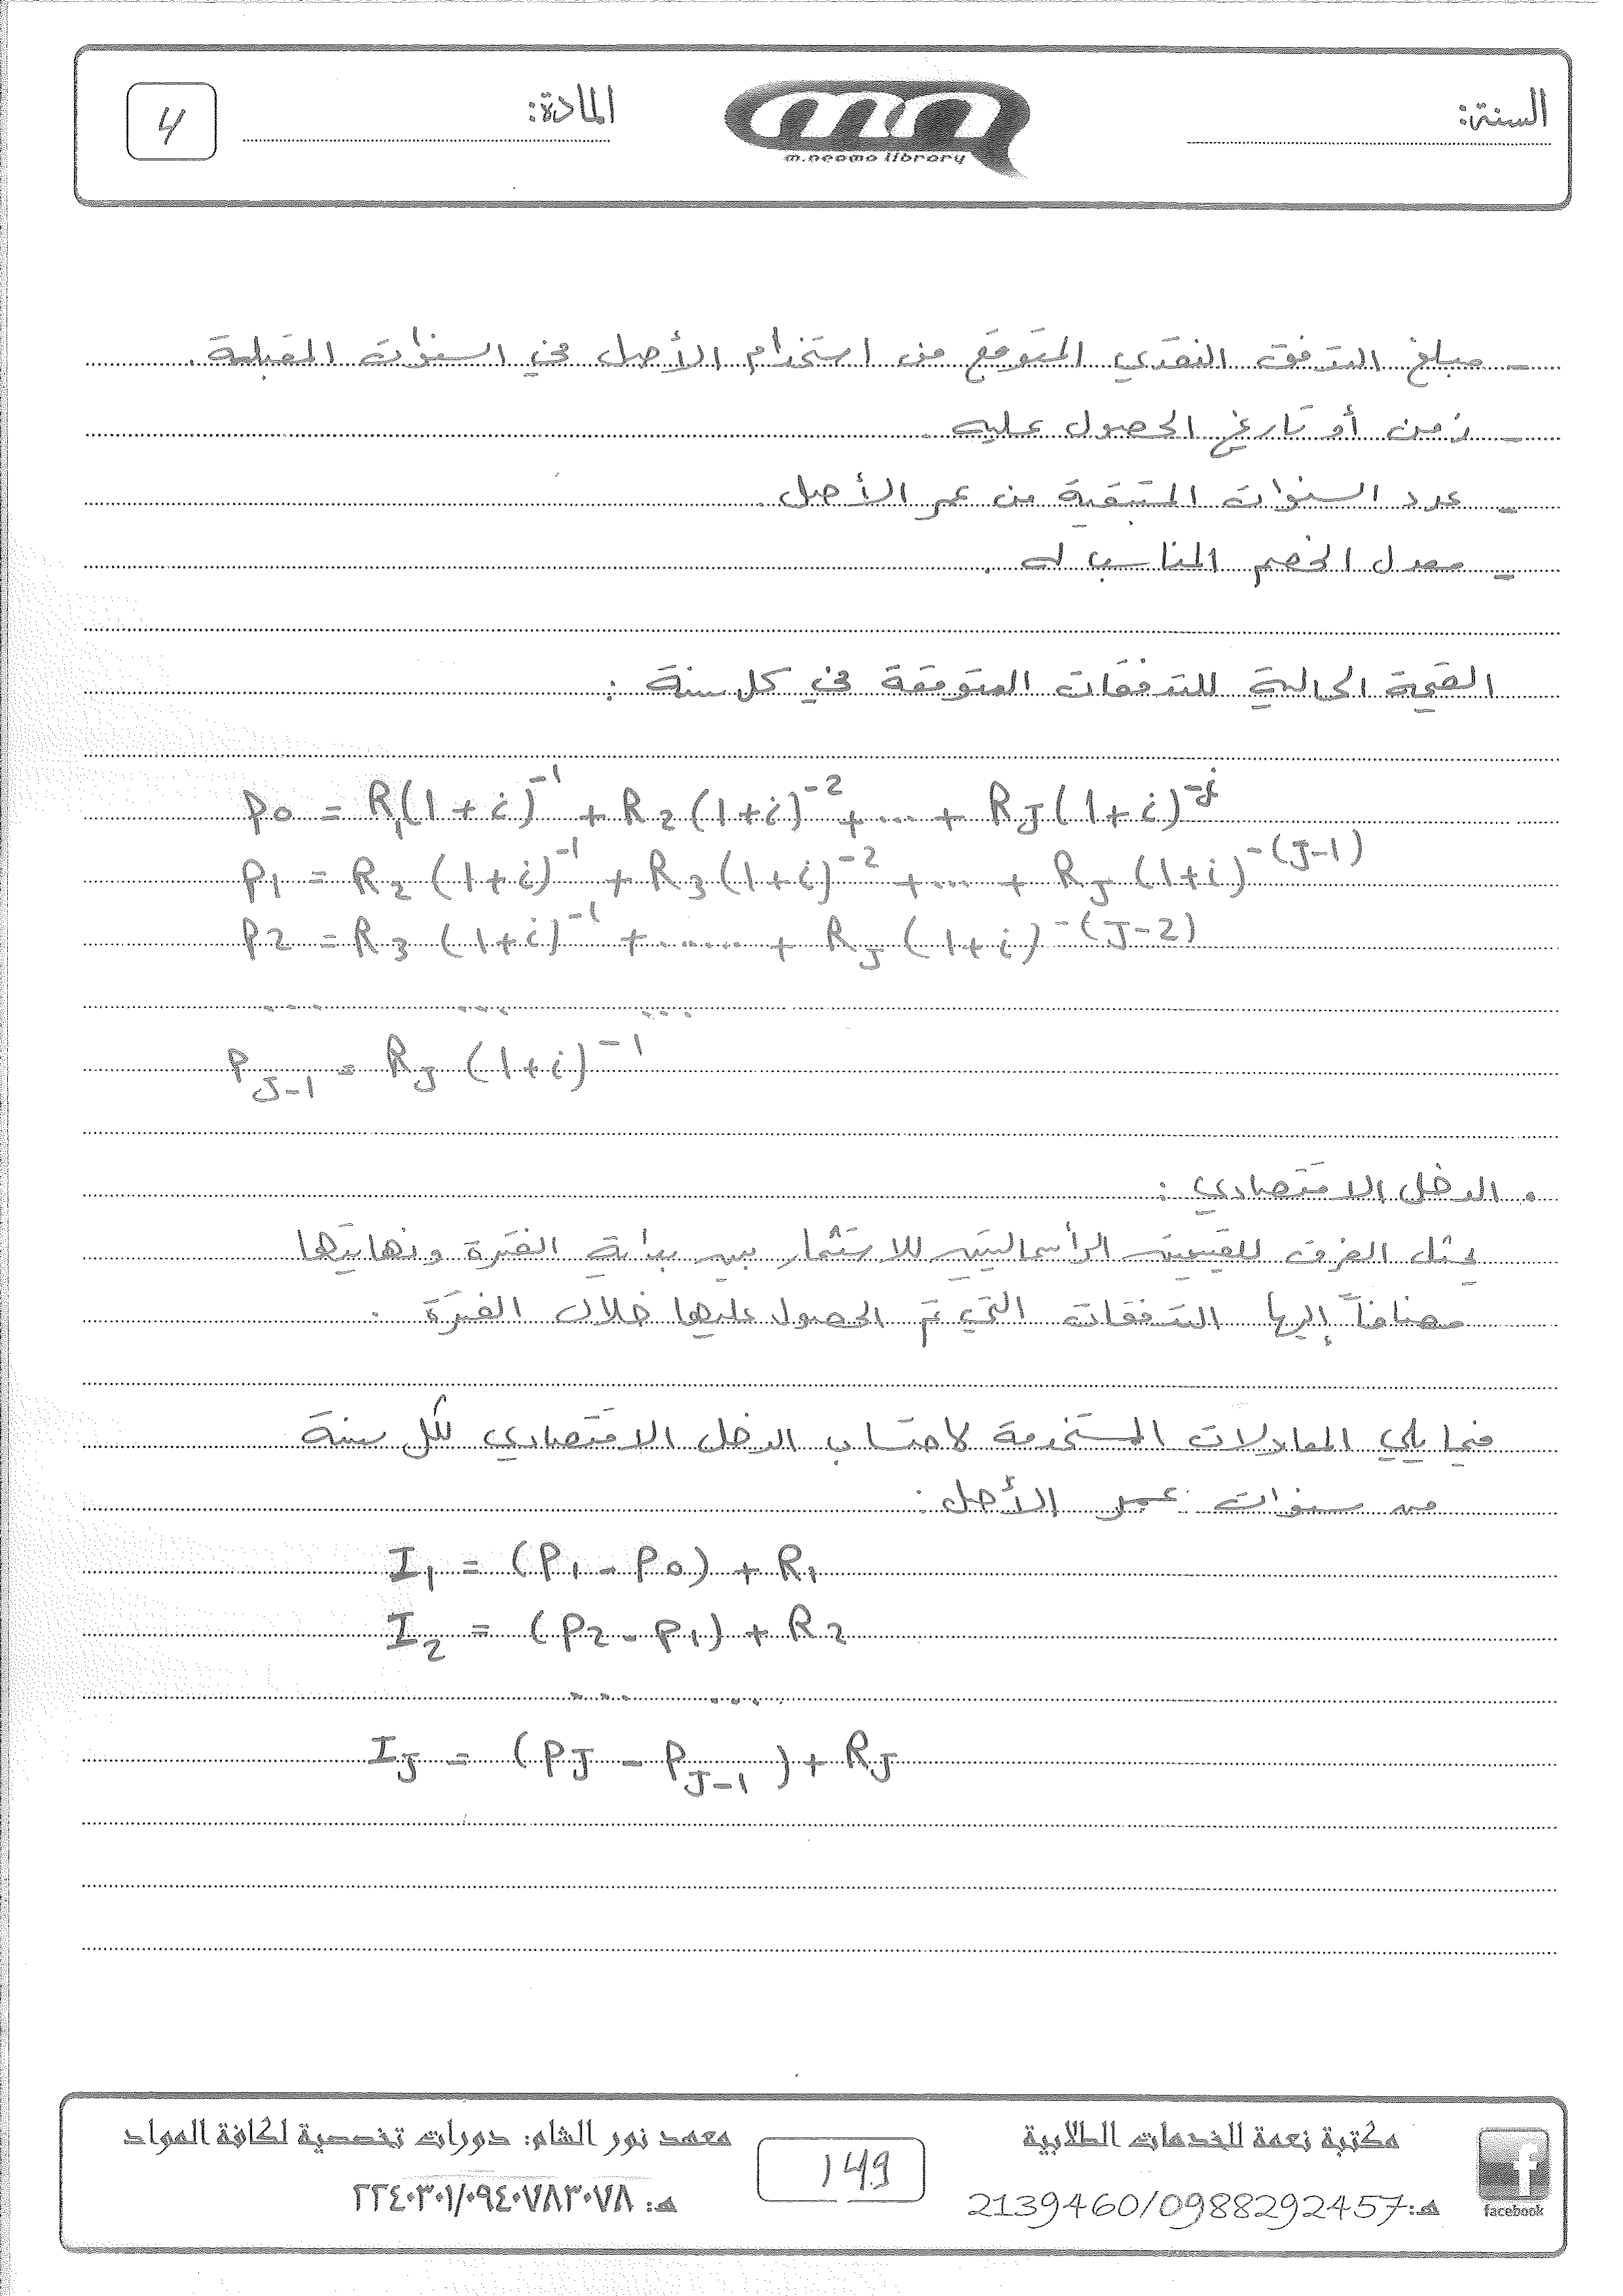 السنة:
m.neama library
المادة:
4
- مبلغ التدفق النقدي المتوقع من استخدام الأصل في السنوات المقبلة.
- زمن أو تاريخ الحصول عليه.
- عدد السنوات المتبقية من عمر الأصل.
- معدل الخصم المناسب له.
القيمة الحالية للتدفقات المتوقعة في كل سنة :
P0 = R₁(1+i)⁻¹ + R₂(1+i)⁻² + ... + R_J(1+i)^-j
P₁ = R₂(1+i)⁻¹ + R₃(1+i)⁻² + ... + R_J(1+i)^-(J-1)
P2 = R₃(1+i)⁻¹ + ....... + R_J(1+i)^-(J-2)
.... .... ....
P_J-1 = R_J(1+i)⁻¹
• الدخل الاقتصادي :
يمثل الفرق للقيمتين الرأسماليتين للاستثمار بين بداية الفترة ونهايتها
مضافاً إليها التدفقات التي تم الحصول عليها خلال الفترة .
فيما يلي المعادلات المستخدمة لاحتساب الدخل الاقتصادي لكل سنة
من سنوات عمر الأصل :
I₁ = (P₁ - P0) + R₁
I₂ = (P₂ - P₁) + R₂
.... ....
I_J = (P_J - P_J-1) + R_J
facebook
مكتبة نعمة للخدمات الطلابية
هـ:2139460/0988292457
149
معهد نور الشام: دورات تخصصية لكافة المواد
هـ: ٢٢٤٠٣٠١/٠٩٤٠٧٨٣٠٧٨